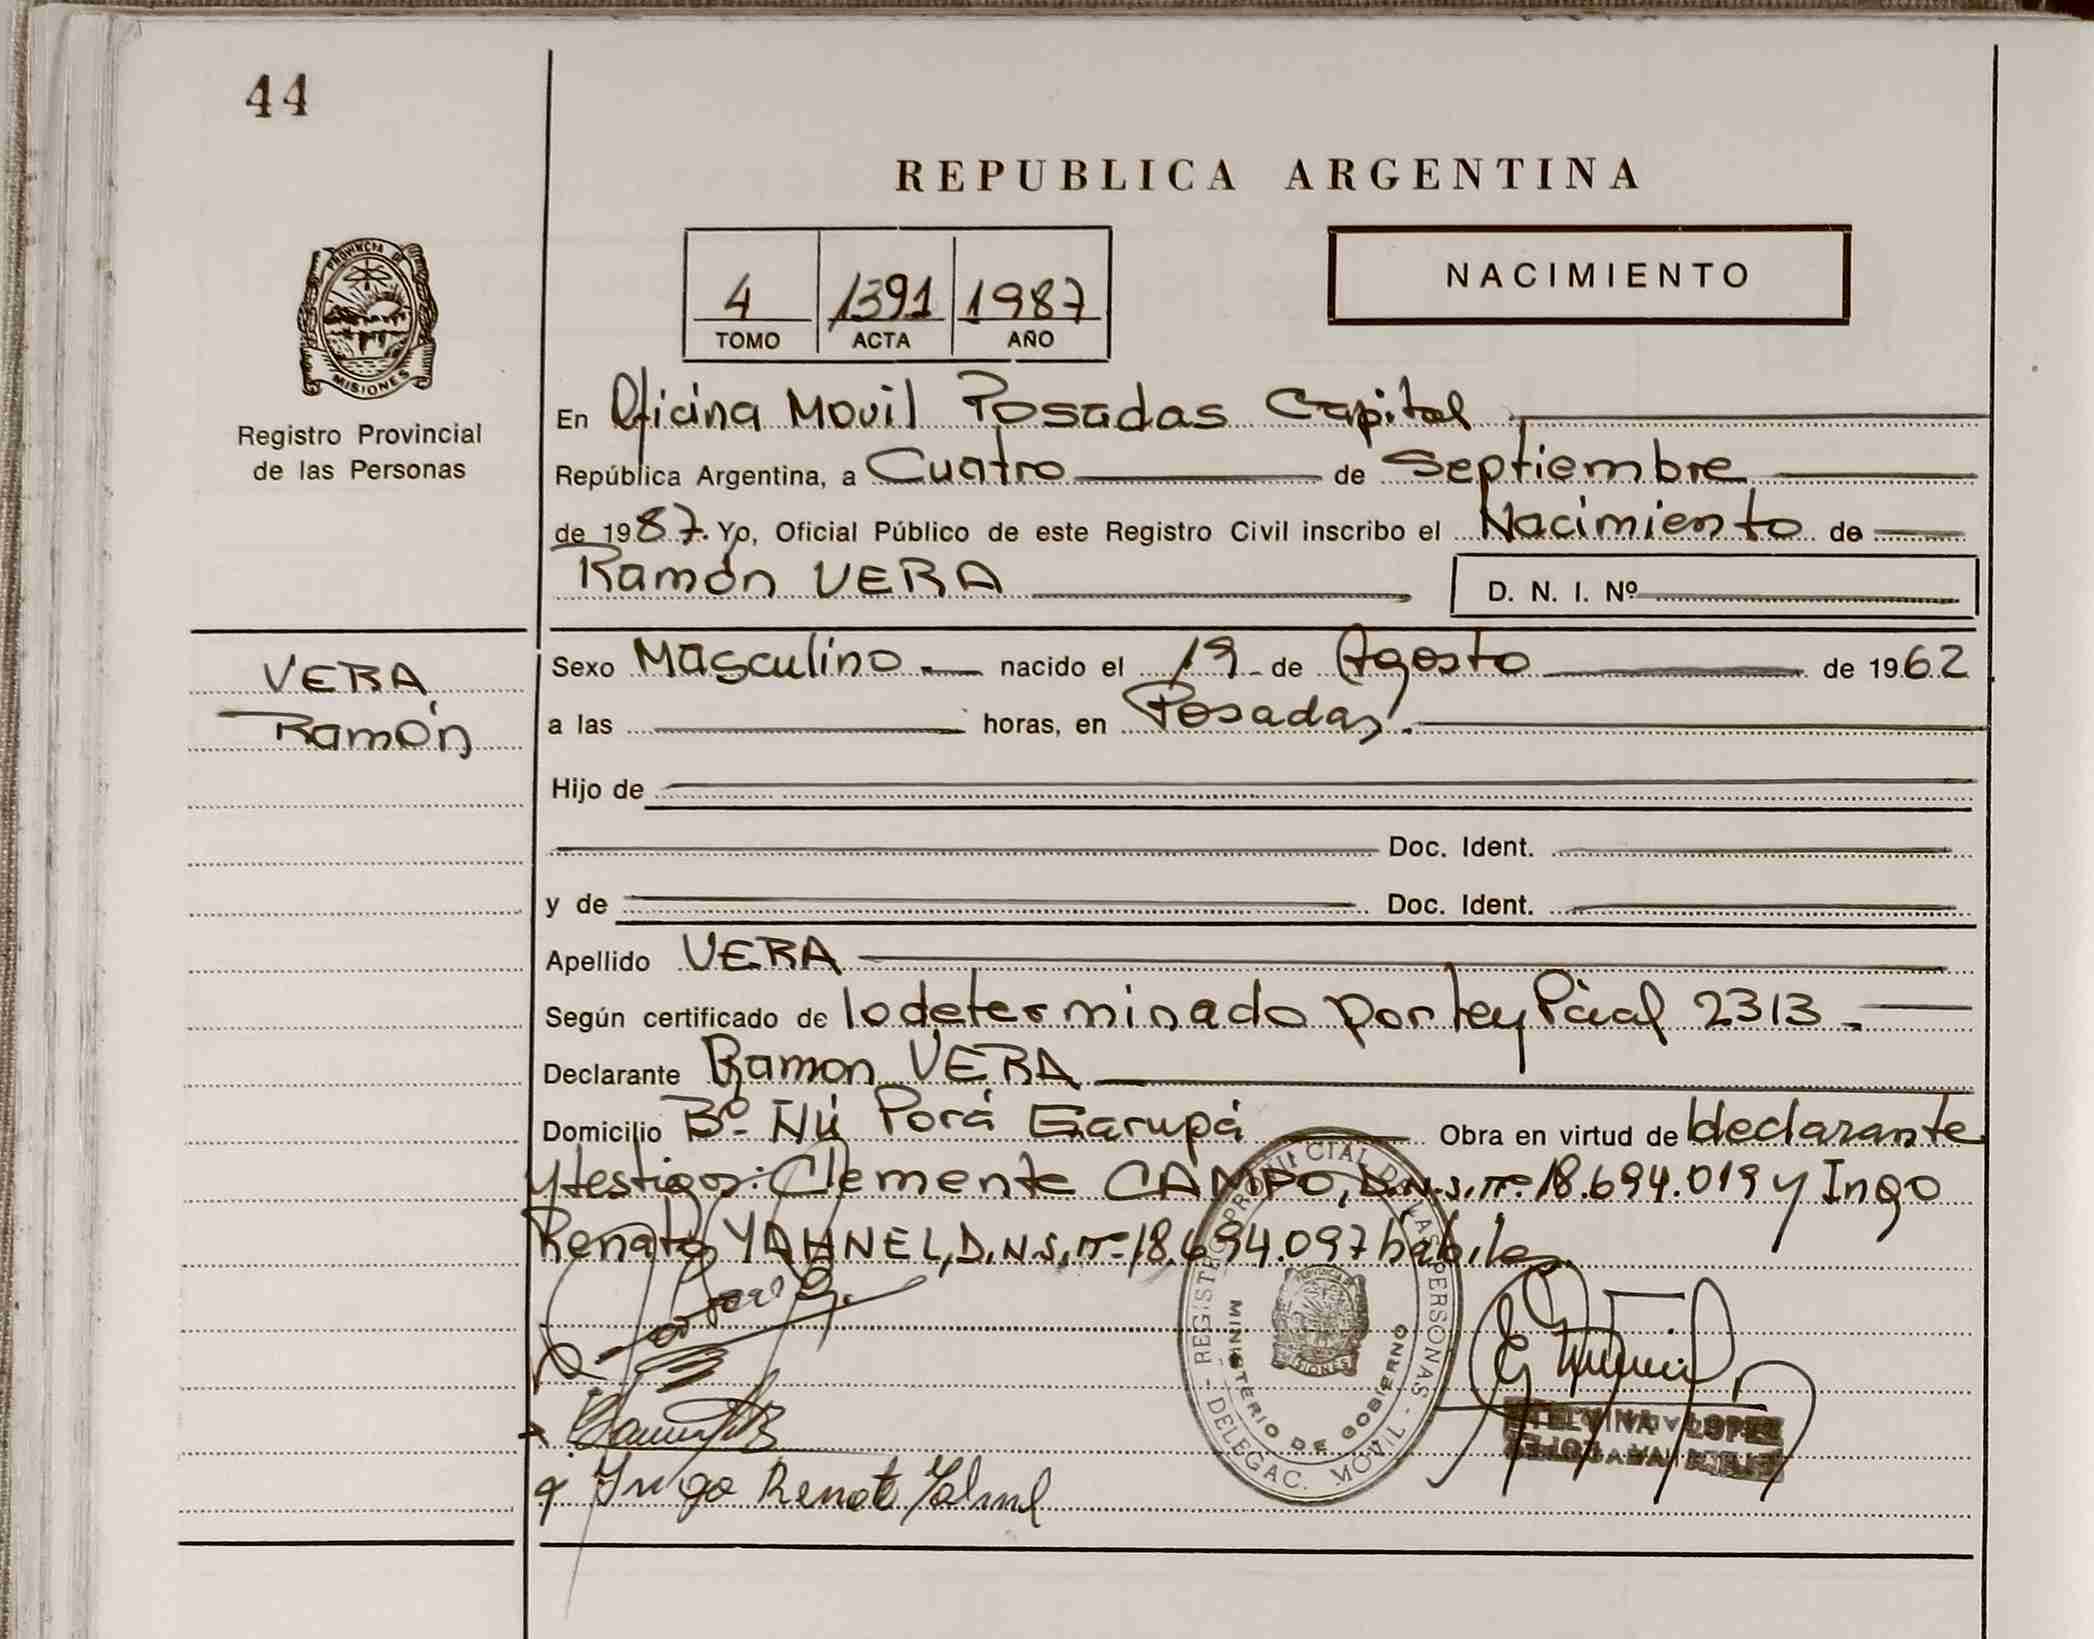 44
REPUBLICA ARGENTINA
PROVINCIA DE
MISIONES
Registro Provincial
de las Personas
4 1391 1987
TOMO ACTA AÑO
NACIMIENTO
En Oficina Movil Posadas Capital
República Argentina, a Cuatro de Septiembre
de 1987. Yo, Oficial Público de este Registro Civil inscribo el Nacimiento de
Ramón VERA D. N. I. Nº
VERA,
Ramón
Sexo Masculino nacido el 19 de Agosto de 1962
a las horas, en Posadas.
Hijo de
Doc. Ident.
y de Doc. Ident.
Apellido VERA
Según certificado de lo determinado por Ley Pcial 2313.
Declarante Ramon VERA
Domicilio Bº Ñú Porá Garupá Obra en virtud de declarante
y testigos: Clemente CAMPO, D.N.I. nº 18.694.019 y Ingo
Renato YAHNEL, D.N.I. nº 18.694.097 habiles.
REGISTRO PROVINCIAL DE LAS PERSONAS - DELEGAC. MOVIL -
MINISTERIO DE GOBIERNO
MISIONES
Ingo Renato Yahnel